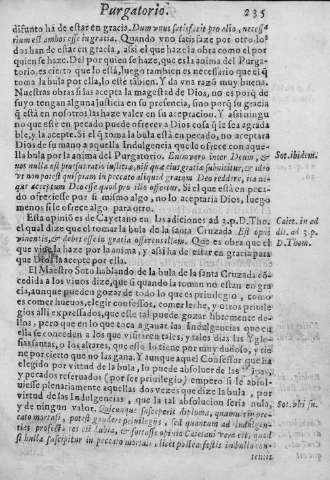 Purgatorio. 235
difunto ha de estar en gracia. Dum vnus satisfacit pro alio, necessa
rium est ambos esse in gratia. Quando vno satisfaze por otro lo
dos han de estar en gracia, assi el que haze la obra como el por
quien se haze. Del por quien se haze, que es la anima del Purga-
torio, es cierto que lo està, luego tambien es necessario que el q̃
toma la bula por ella, lo estè tãbien. Y da vna razõ muy buena.
Nuestras obras si las acepta la magestad de Dios, no es porq̃ de
suyo tengan alguna justicia en su presencia, sino porq̃ su gracia
q̃ està en nosotros las haze valer en su aceptacion. Y assi ningu
no que estè en pecado puede ofrecer a Dios cosa q̃ le sea agrada
ble, y la acepte. Si el q̃ toma la bula està en pecado, no aceptara
Dios de su mano aquella Indulgencia que le ofrece con aque-
lla bula por la anima del Purgatorio. Enimvero inter Deum, &
nos nulla est prorsus ratio iustitiæ, nisi quæ eius gratia subnititur, & ideo
ve non potest quispiam in peccato aliquid gratum Deo reddere, ita neq̃
que acceptum Deo esse quod pro illo offertur. Si el que està en peca-
do ofreciesse por si mismo algo, no lo aceptaria Dios, luego
menos si le ofrece algo para otro.
Sot. ibidem.
Esta opiniõ es de Cayetano en las adiciones ad 3. p. D. Tho.
dize alli que el que toma la bula de la santa Cruzada Est opus
viuentis, & debet esse in gratia offerens illam. Que es obra que el
que viue haze por la anima, y assi ha de estar en gracia para
que Dios la acepte por ella.
Caiet. in ad
dit. ad 3. p.
D. Thom.
El Maestro Soto hablando de la bula de la santa Cruzada cõ-
cedida a los viuos dize, que si quando la toman no estan en gra
cia, aunque pueden gozar de todo lo que es priuilegio, como
es comer hueuos, elegir confessor, comer leche, y otros priuile
gios alli expressados, que esse tal puede gozar libremente de-
llos, pero que en lo que toca a ganar las Indulgencias que en
ella se conceden a los que visitaren tales, y tales dias las Ygle-
sias santas, o los altares, que esso lo tiene por muy dudoso, y tie
ne por cierto que no las gana. Y aunque aquel Confessor que ha
elegido por virtud de la bula, lo puede absoluer de las
y pecados reseruados (por ser priuilegio) empero si le absol-
uiesse plenariamente aquellas dos vezes que dize la bula, por
virtud de las Indulgencias, que la tal absolucion seria nula,
y de ningun valor. Quicunque susceperit diploma, quamuis in pec-
cato mortali, potest gaudere priuilegijs, sed quantum ad Indulgen-
ties profecto res est dubia, & fortasse opinio Caietani vera est, quod
si bulla suscipitur in peccato mortali, licet postea festis in bulla con-
Sot. vbi su.
tentis